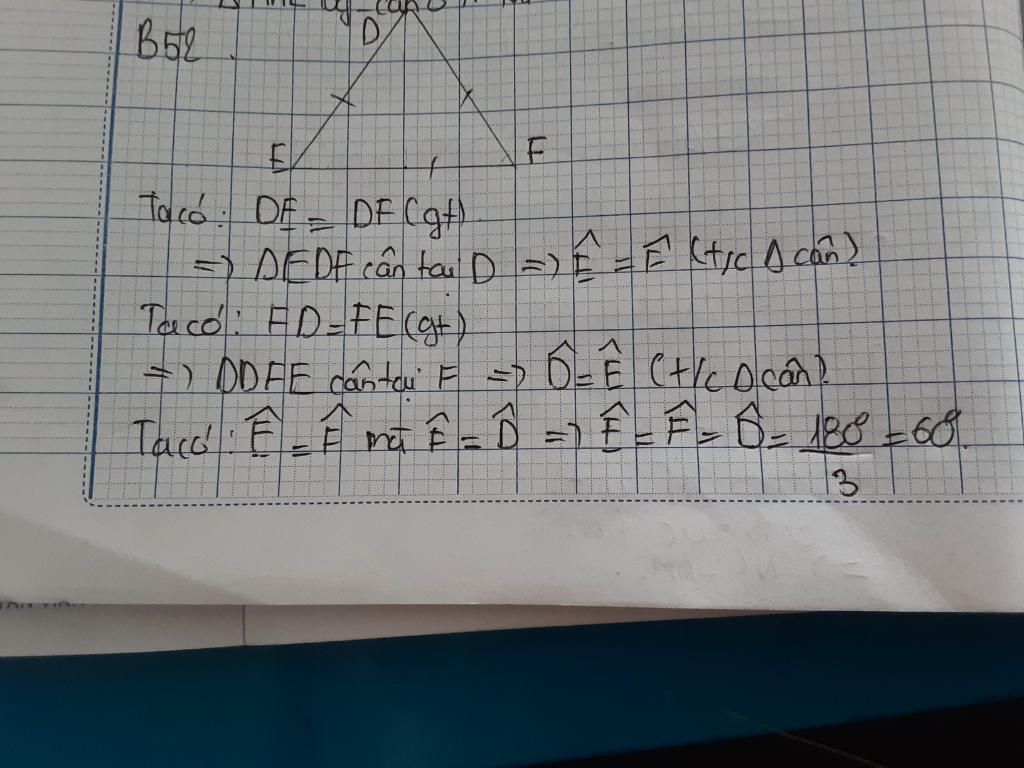 B52.
D
E F
Ta có: DE = DF (gt)
=> ΔEDF cân tại D => Ê = F̂ (t/c Δ cân).
Ta có: FD = FE (gt)
=> ΔDFE cân tại F => D̂ = Ê (t/c Δ cân).
Ta có: Ê = F̂ mà Ê = D̂ => Ê = F̂ = D̂ = 180°/3 = 60°.